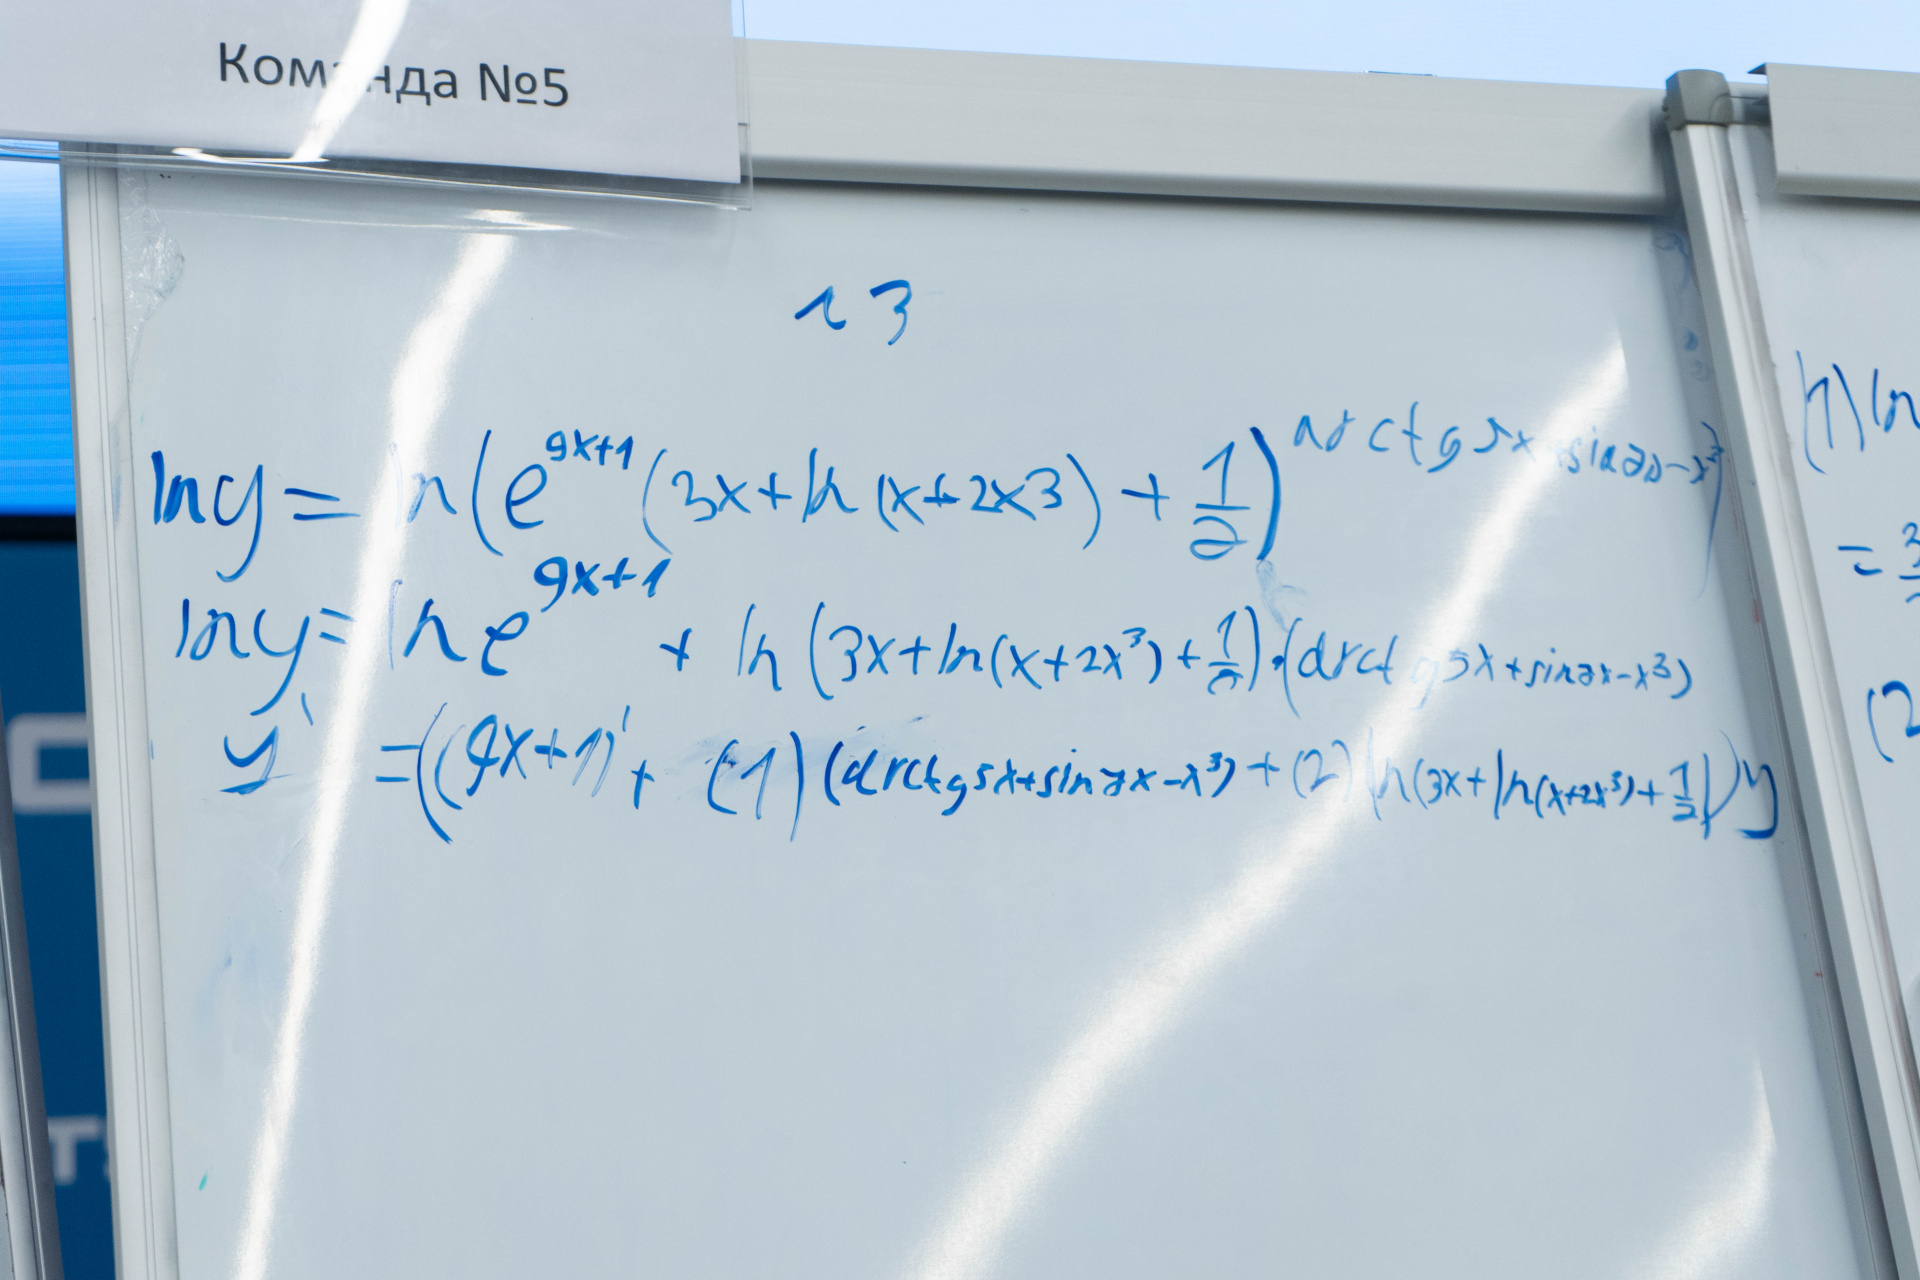 Команда №5
13
ln y = ln(e^{9x+1}(3x+ln(x+2x3)+\frac{1}{2})^{arctg5x+sin7x-x^3})
ln y = ln e^{9x+1} + ln(3x+ln(x+2x^3)+\frac{1}{2})·(arctg5x+sin7x-x^3)
y' =((9x+1)' + (1)(arctg5x+sin7x-x^3)+(2)ln(3x+ln(x+2x^3)+\frac{1}{2}))y
ln
= 3
(2